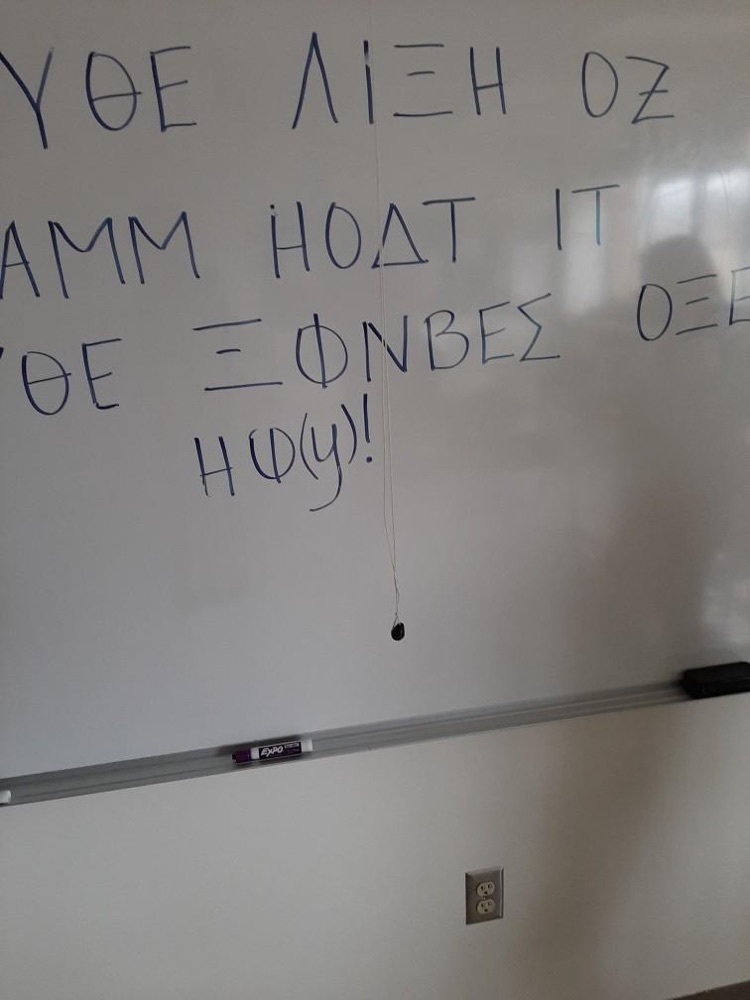 ΥΘΕ ΛΙΞΗ ΟΖ
ΑΜΜ ΗΟΔΤ ΙΤ
ΥΘΕ ΞΦΝΒΕΣ ΟΞΕ
ΗΦ(y)!
EXPO